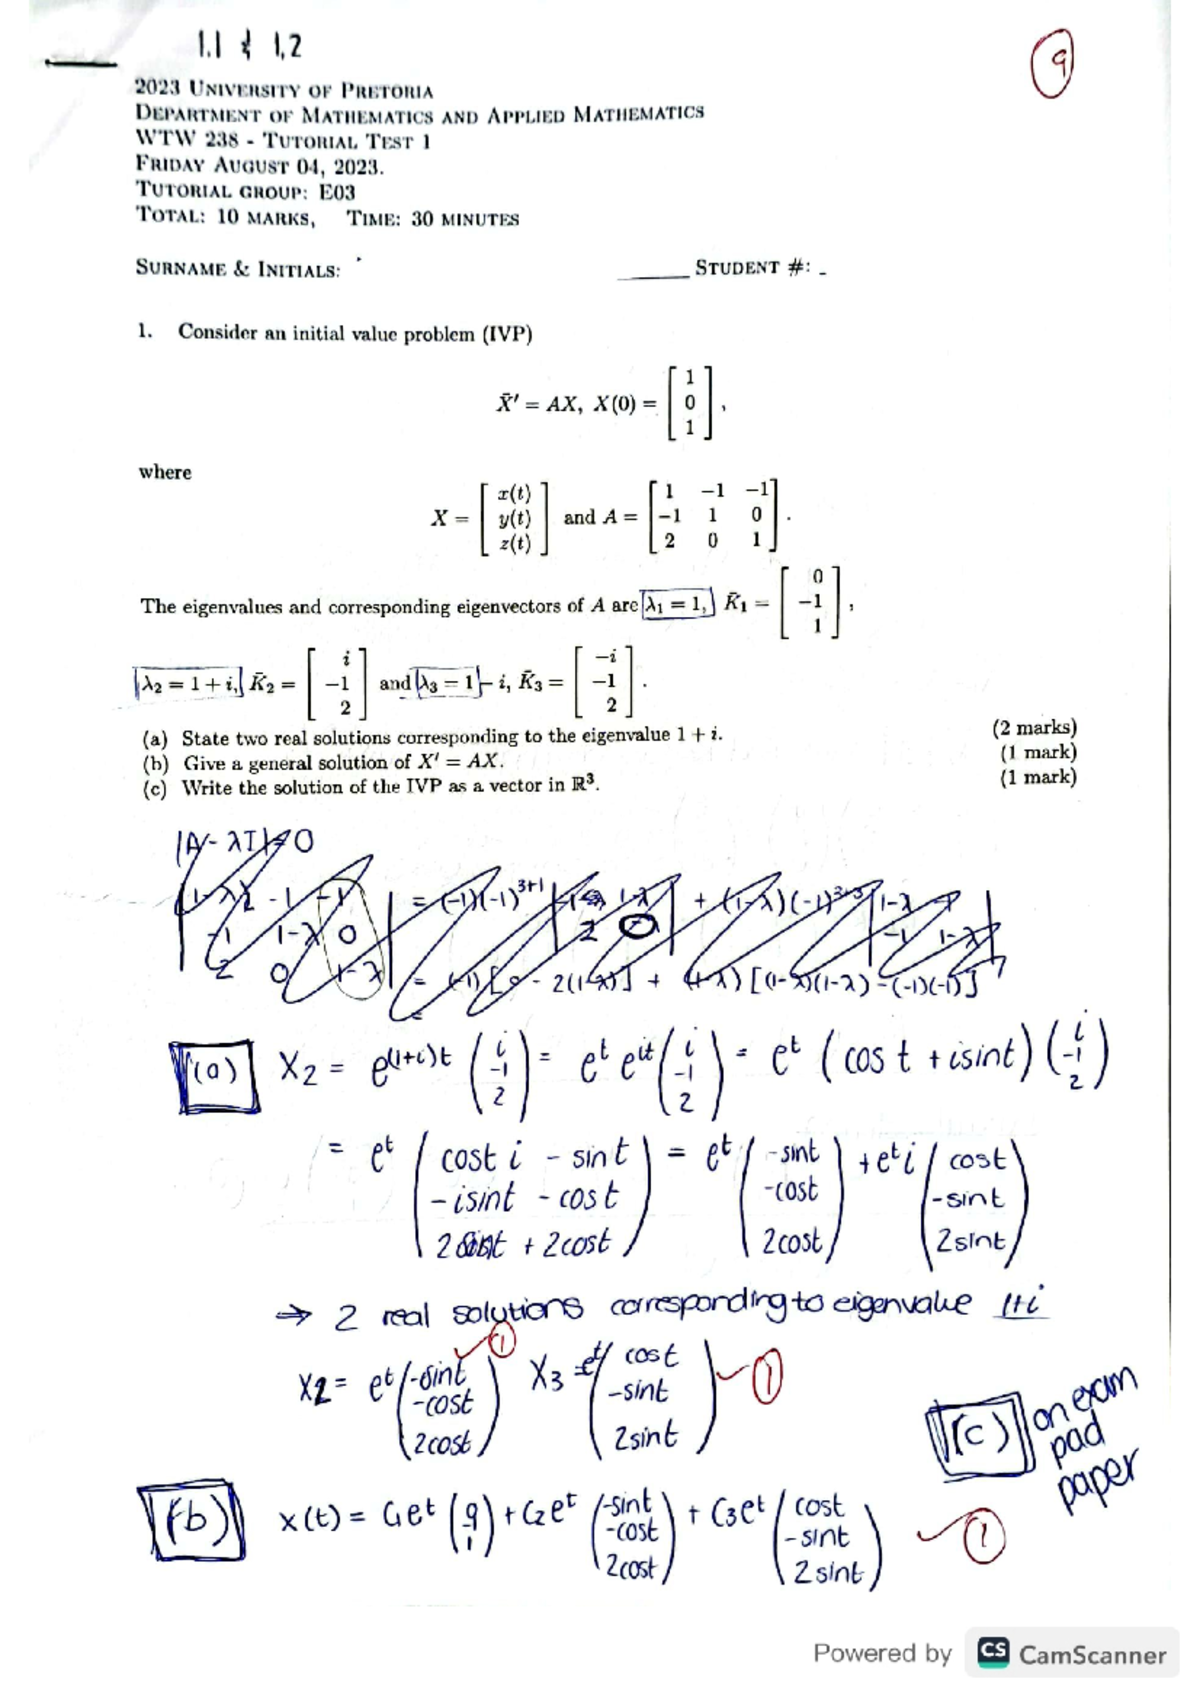 1.1 & 1,2
9
2023 University of Pretoria
Department of Mathematics and Applied Mathematics
WTW 238 - Tutorial Test 1
Friday August 04, 2023.
Tutorial group: E03
Total: 10 marks, Time: 30 minutes
Surname & Initials: ______ Student #:
1. Consider an initial value problem (IVP)
X̄′ = AX, X(0) = [1 0 1],
where
X = [x(t) y(t) z(t)] and A = [1 −1 −1; −1 1 0; 2 0 1].
The eigenvalues and corresponding eigenvectors of A are λ₁ = 1, K̄₁ = [0 −1 1],
λ₂ = 1 + i, K̄₂ = [i −1 2] and λ₃ = 1 − i, K̄₃ = [−i −1 2].
(a) State two real solutions corresponding to the eigenvalue 1 + i. (2 marks)
(b) Give a general solution of X′ = AX. (1 mark)
(c) Write the solution of the IVP as a vector in ℝ³. (1 mark)
|A - λI| = 0
(a) X₂ = e^(1+i)t (i -1 2) = e^t e^it (i -1 2) = e^t (cost + isint) (i -1 2)
= e^t (cost i - sint; -isint - cost; 2 sint + 2cost) = e^t (-sint; -cost; 2cost) + e^t i (cost; -sint; 2sint)
⇒ 2 real solutions corresponding to eigenvalue 1+i
X2 = e^t (-sint; -cost; 2cost) ① X₃ = e^t (cost; -sint; 2sint) ①
(c) on exam pad paper
(b) x(t) = C₁e^t (0 -1 1) + C₂e^t (-sint; -cost; 2cost) + C₃e^t (cost; -sint; 2sint) ①
Powered by CS CamScanner